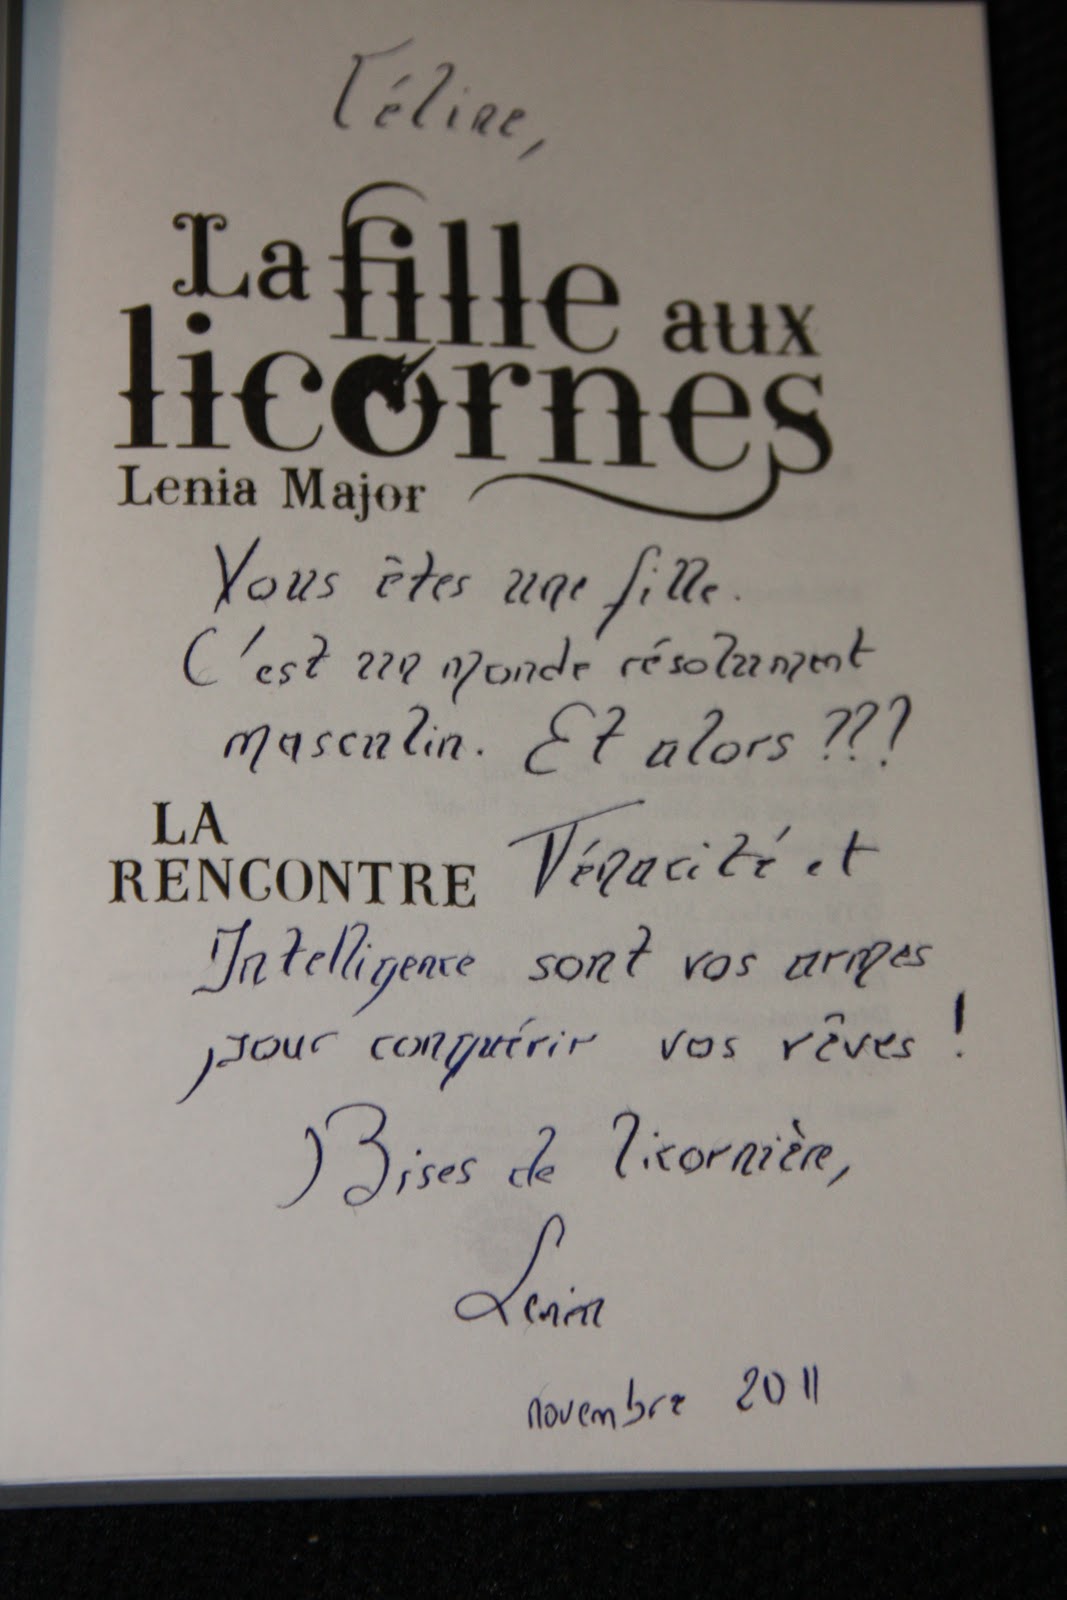 Céline,
La fille aux
licornes
Lenia Major
Vous êtes une fille.
C'est un monde résolument
masculin. Et alors ???
LA
RENCONTRE
Ténacité et
Intelligence sont vos armes
pour conquérir vos rêves !
Bises de licornière,
Lenia
novembre 2011